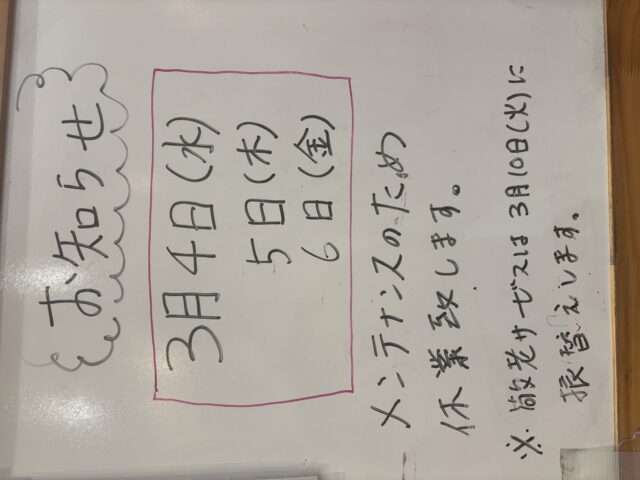 お知らせ
3月4日(水)
5日(木)
6日(金)
メンテナンスのため
休業致します。
※敬老サービスは3月10日(火)に
振替えします。